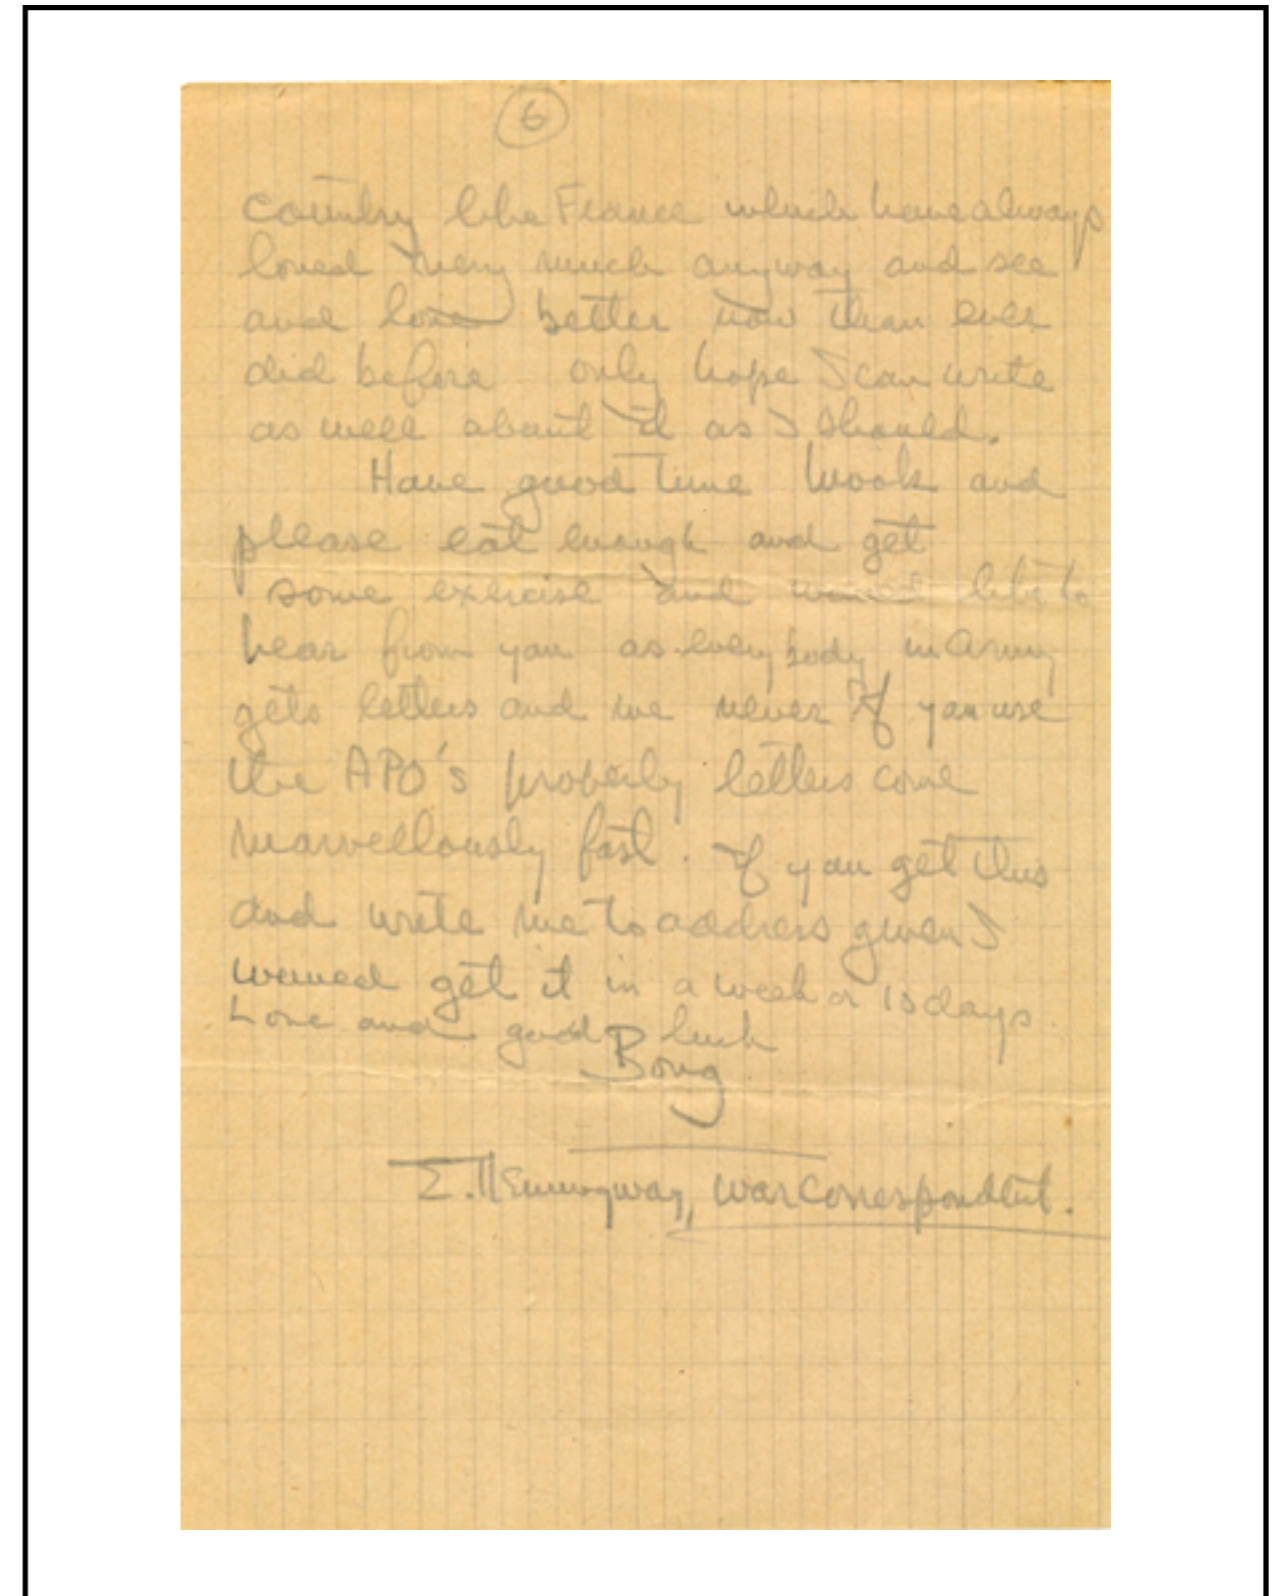 6
country like France which have always
loved very much anyway and see
and love better now than ever
did before only hope I can write
as well about it as I should.
Have good time Mook and
please eat enough and get
some exercise and would like to
hear from you as everybody in Army
gets letters and we never If you use
the APO's properly letters come
marvellously fast. If you get this
and write me to address given I
would get it in a week or 10 days
Love and good luck
Bong
E. Hemingway, War Correspondent.